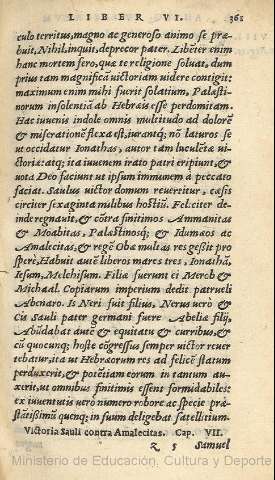 LIBER VI. 361
culo territus, magno ac generoso animo se præ
buit, Nihil, inquit, deprecor pater. Libẽter enim
hanc mortem fero, quæ te religione soluat, dum
prius tam magnificã victoriam videre contigit:
maximum enim mihi fuerit solatium, Palæsti-
norum insolentiã ab Hebræis esse perdomitam.
Hac iuuenis indole omnis multitudo ad dolorẽ
& miserationẽ flexa est, iurantq; nõ laturos se
ut occidatur Ionathas, autor tam luculẽtæ vi-
ctoriæ: atq; ita iuuenem irato patri eripiunt, &
uota Deo faciunt ut ipsum immunem à peccato
faciat. Saulus victor domum reuertitur, cæsis
circiter sexaginta milibus hostiũ. Felciter de-
inde regnauit, & cõtra finitimos Ammanitas
& Moabitas, Palæstinosq; & Idumæos ac
Amalecitas, & regẽ Oba multas res gessit pro
sperè, Habuit autẽ liberos mares tres, Ionathã,
Iesum, Melchisum. Filiæ fuerunt ei Merob &
Michaal. Copiarum imperium dedit patrueli
Abenaro. Is Neri fuit filius, Nerus verò &
Cis Sauli pater germani fuere Abeliæ filij,
Abũdabat autẽ & equitatu & curribus, &
cũ quocunq; hoste cõgressus semper victor reuer
tebatur, ita ut Hebræorum res ad felicẽ statum
perduxerit, & potẽtiam eorum in tantum au-
xerit, ut omnibus finitimis essent formidabiles:
ex iuuentutis verò numero robore ac specie præ-
stãtissimũ quenq; in suum deligebat satellitium.
Victoria Sauli contra Amalecitas. Cap. VII.
z 5 Samuel
Ministerio de Educación, Cultura y Deporte